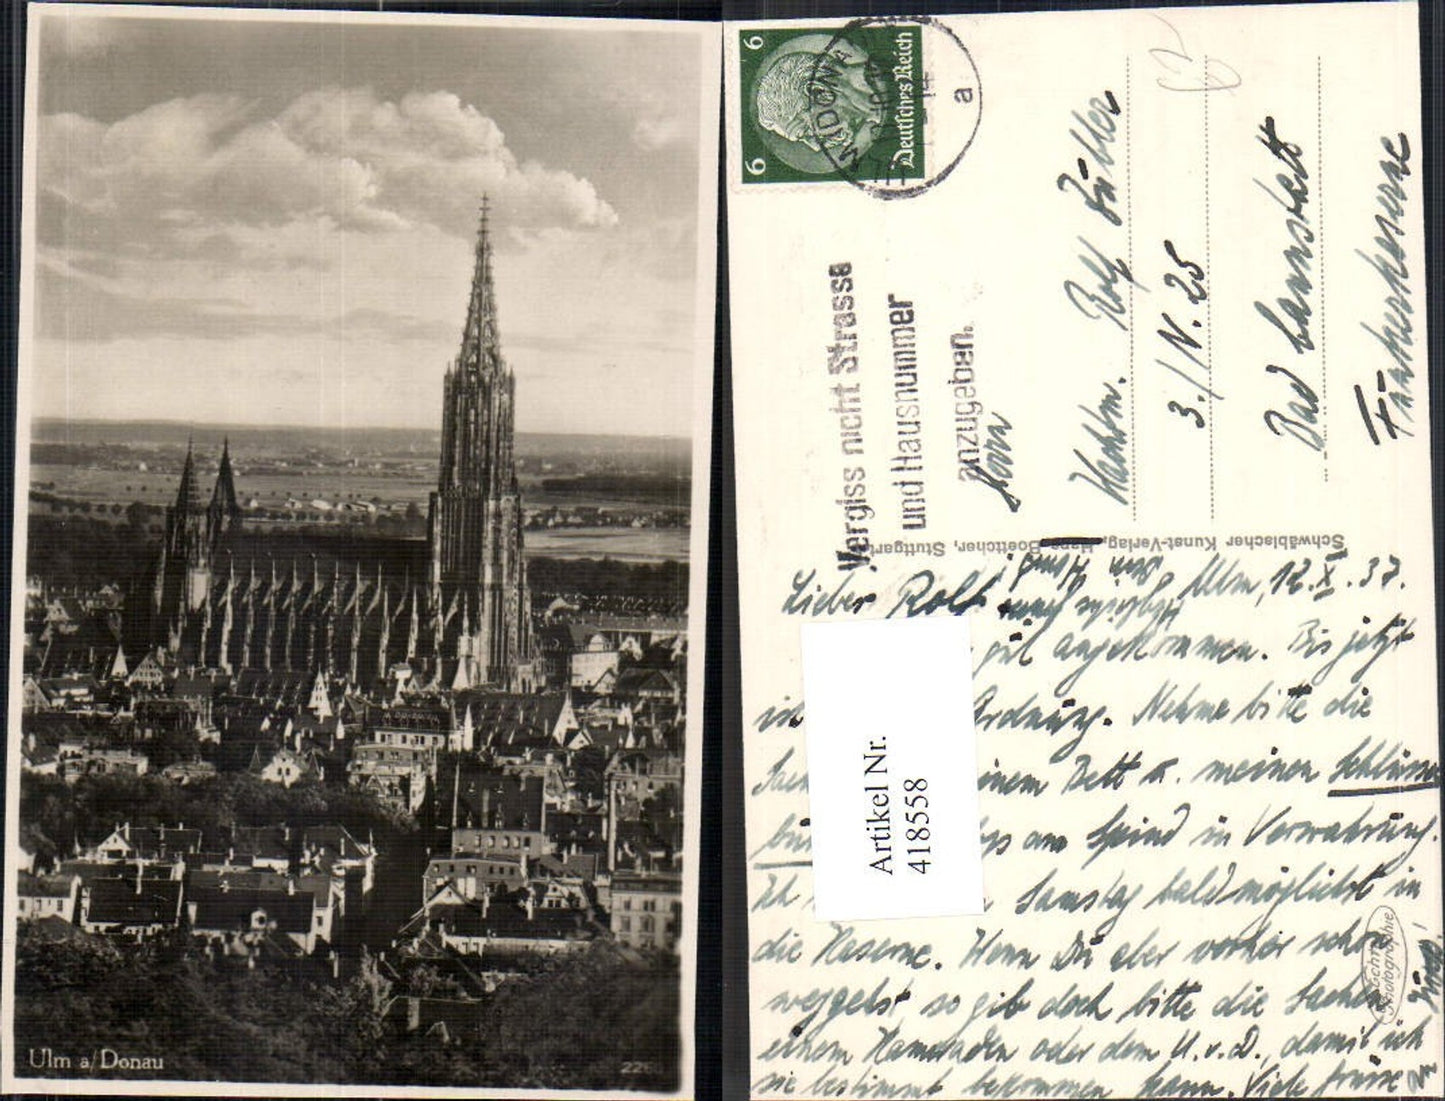 Ulm a/Donau
6
6
Deutsches Reich
a
Vergiss nicht Strasse
und Hausnummer
anzugeben.
Herrn
Rolf
3./N. 25
Bad Cannstatt
Funkerkaserne
Schwäbischer Kunst-Verlag, Hans Boettcher, Stuttgart
Ulm, 12.X.37.
Lieber Rolf
gut angekommen. Bis jetzt
Ordnung. Nehme bitte die
Bett u. meinen Schlüssel
am Spind in Verwahrung.
Ich Samstag baldmöglichst in
die Kaserne. Wenn Du aber vorher schon
weggehst, so gib doch bitte die Sachen
einem Kameraden oder dem U.v.D., damit ich
sie bestimmt bekommen kann. Viele Grüsse
Artikel Nr.
418558